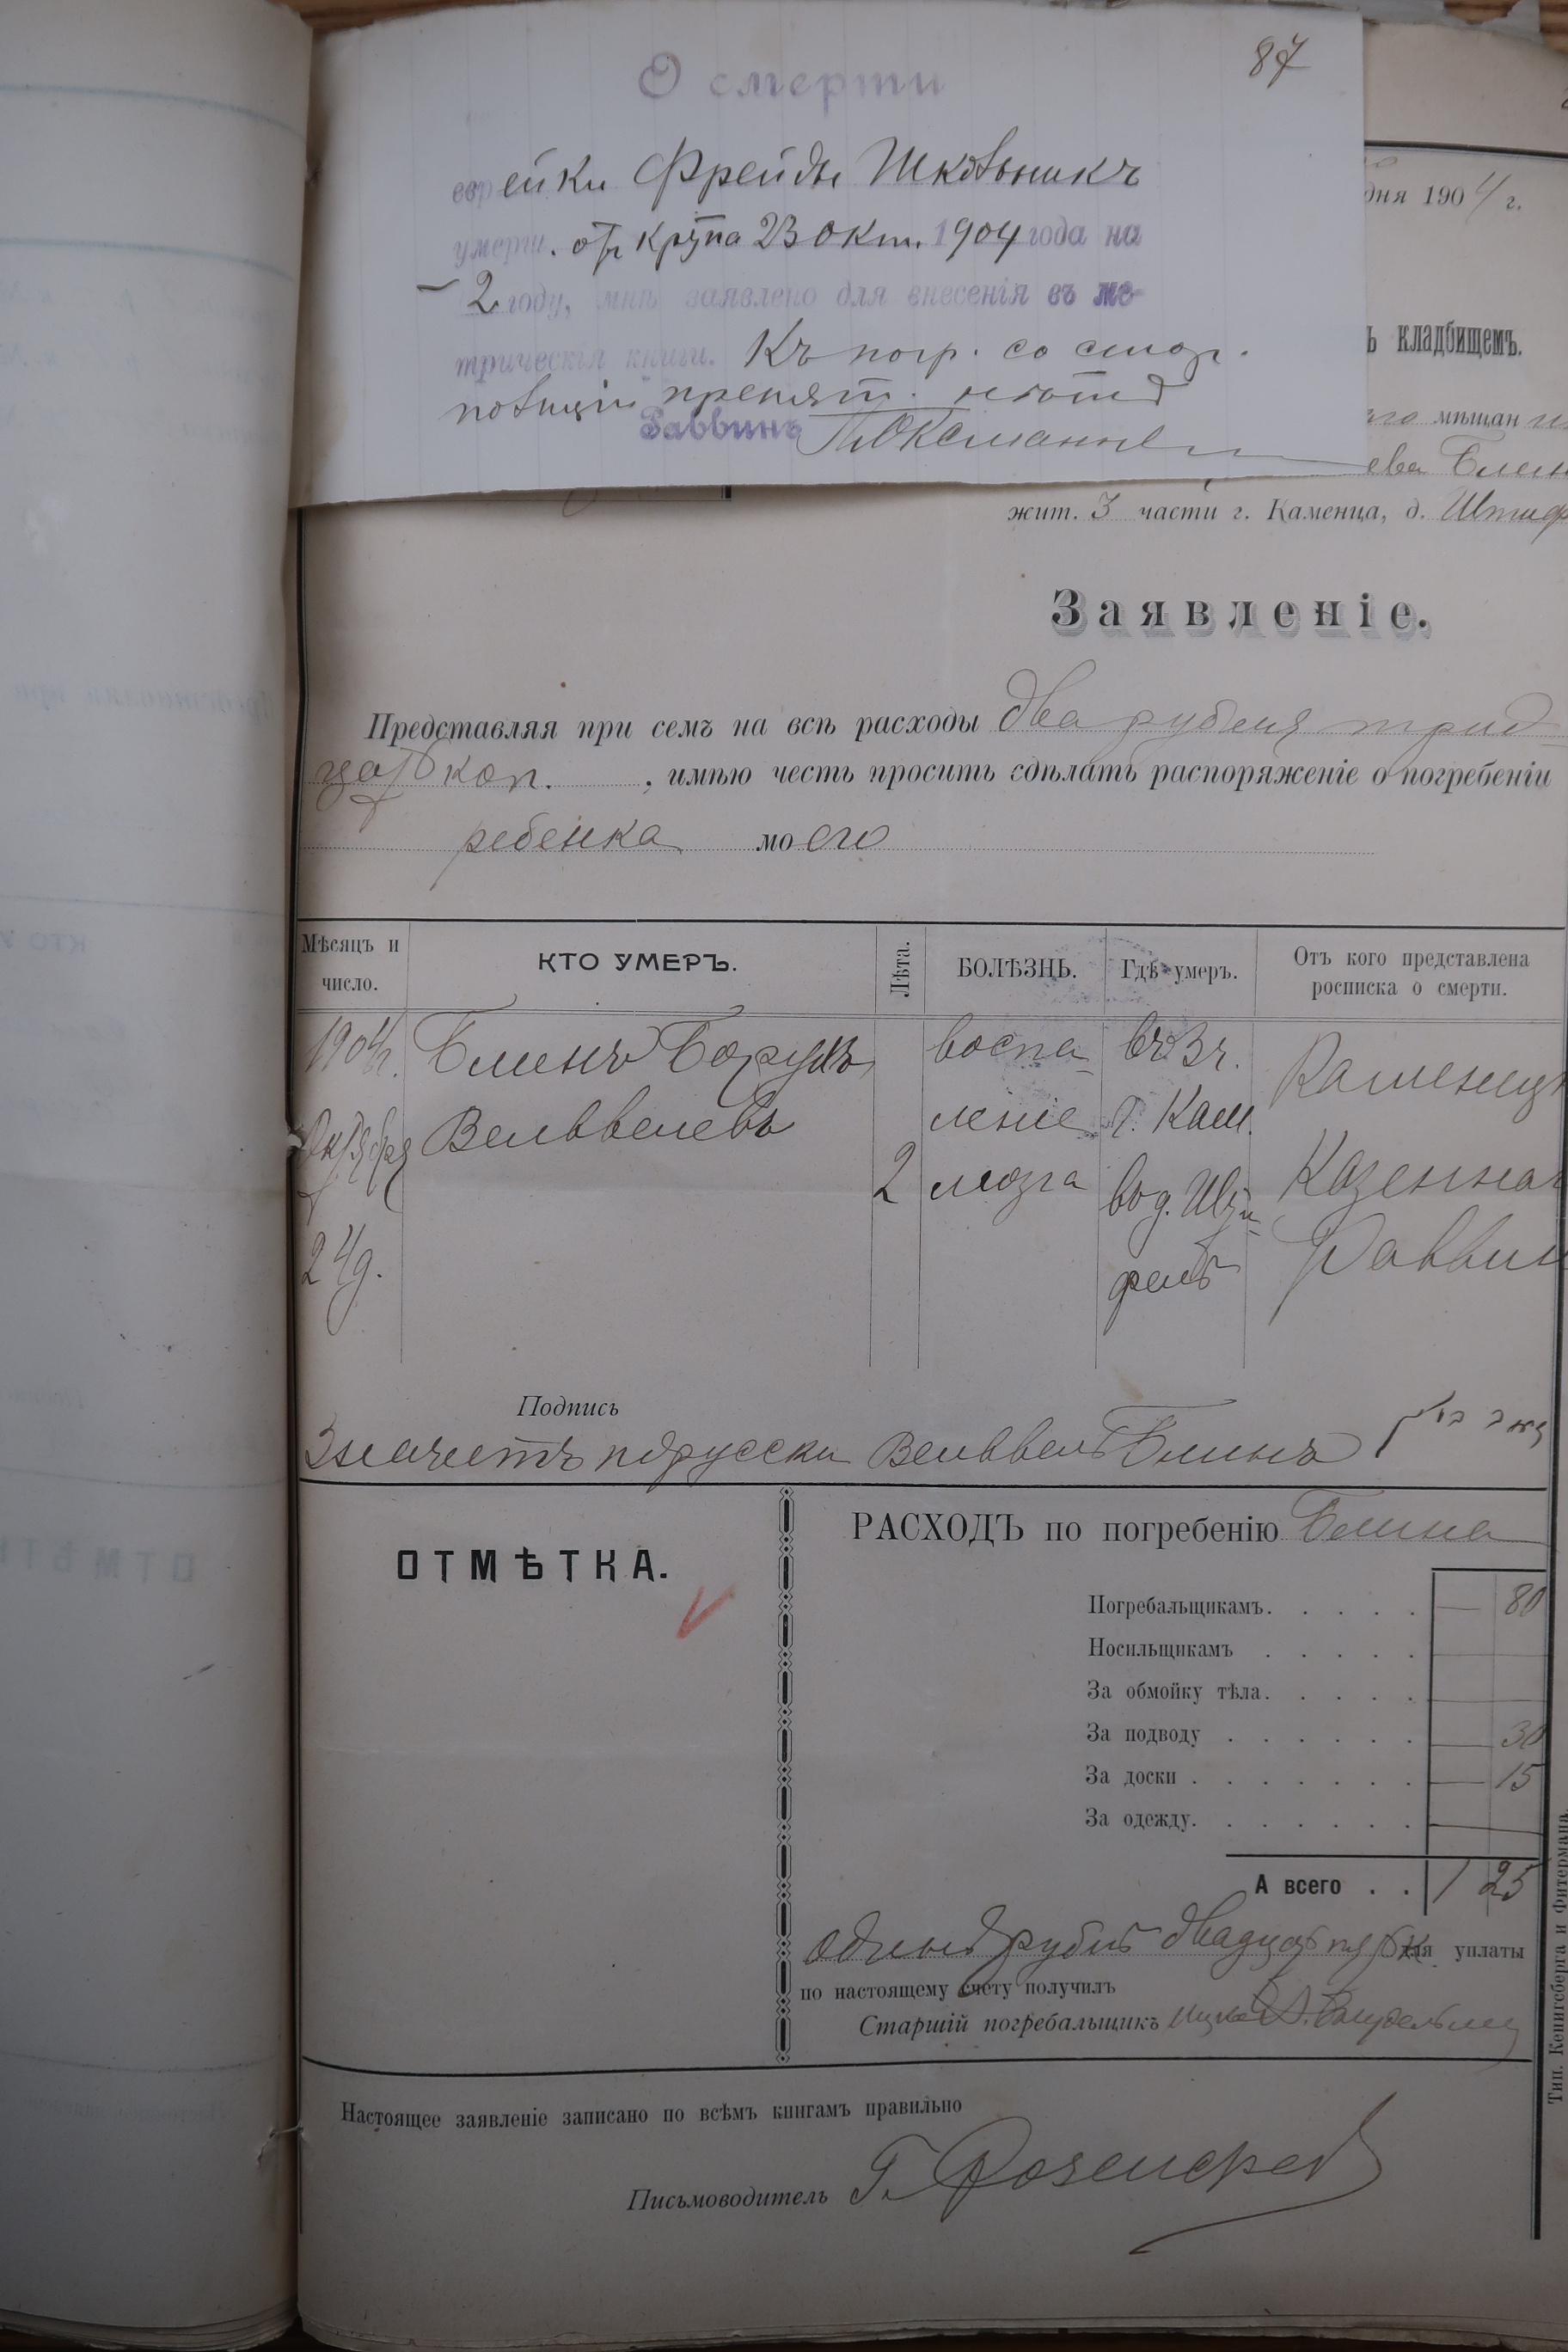 87
О смерти
еврейки Фрейды Школьникъ
умерш. отъ крупа 23 Окт. 1904 года на
2 году, мнѣ заявлено для внесенія въ ме-
трическія книги. Къ погр. со стор.
полиціи препят. нѣтъ
Раввинъ
дня 1904 г.
кладбищемъ.
мѣщан
жит. 3 части г. Каменца, д.
Заявленіе.
Представляя при семъ на всѣ расходы два рубля трид
цать коп. , имѣю честь просить сдѣлать распоряженіе о погребеніи
ребенка моего
Мѣсяцъ и число. КТО УМЕРЪ. Лѣта. БОЛѢЗНЬ. Гдѣ умеръ. Отъ кого представлена росписка о смерти.
1904 г. Блинъ Борухъ воспа- въ 3 ч.
Октября Вельвелевъ леніе г. Кам.
2 мозга
24 д.
Подпись
Значетъ порусски Вельвель Блинъ
ОТМѢТКА.
РАСХОДЪ по погребенію Блина
Погребальщикамъ. . . . . — 80
Носильщикамъ . . . . .
За обмойку тѣла. . . . .
За подводу . . . . . . — 30
За доски . . . . . . . — 15
За одежду. . . . . . . —
А всего . . 1 25
одинъ рубль двадцать пять к. для уплаты
по настоящему счету получилъ
Старшій погребальщикъ
Настоящее заявленіе записано по всѣмъ книгамъ правильно
Письмоводитель Г.
Тип. Кенигсберга и Фитермана.